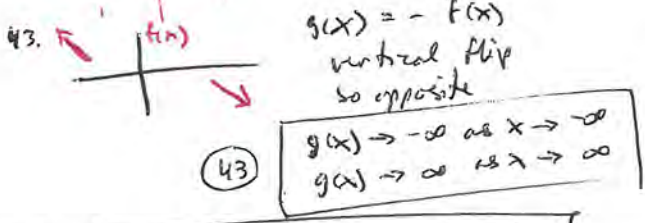 43.
f(x)
g(x) = - f(x)
vertical flip
so opposite
43
g(x) → -∞ as x → -∞
g(x) → ∞ as x → ∞